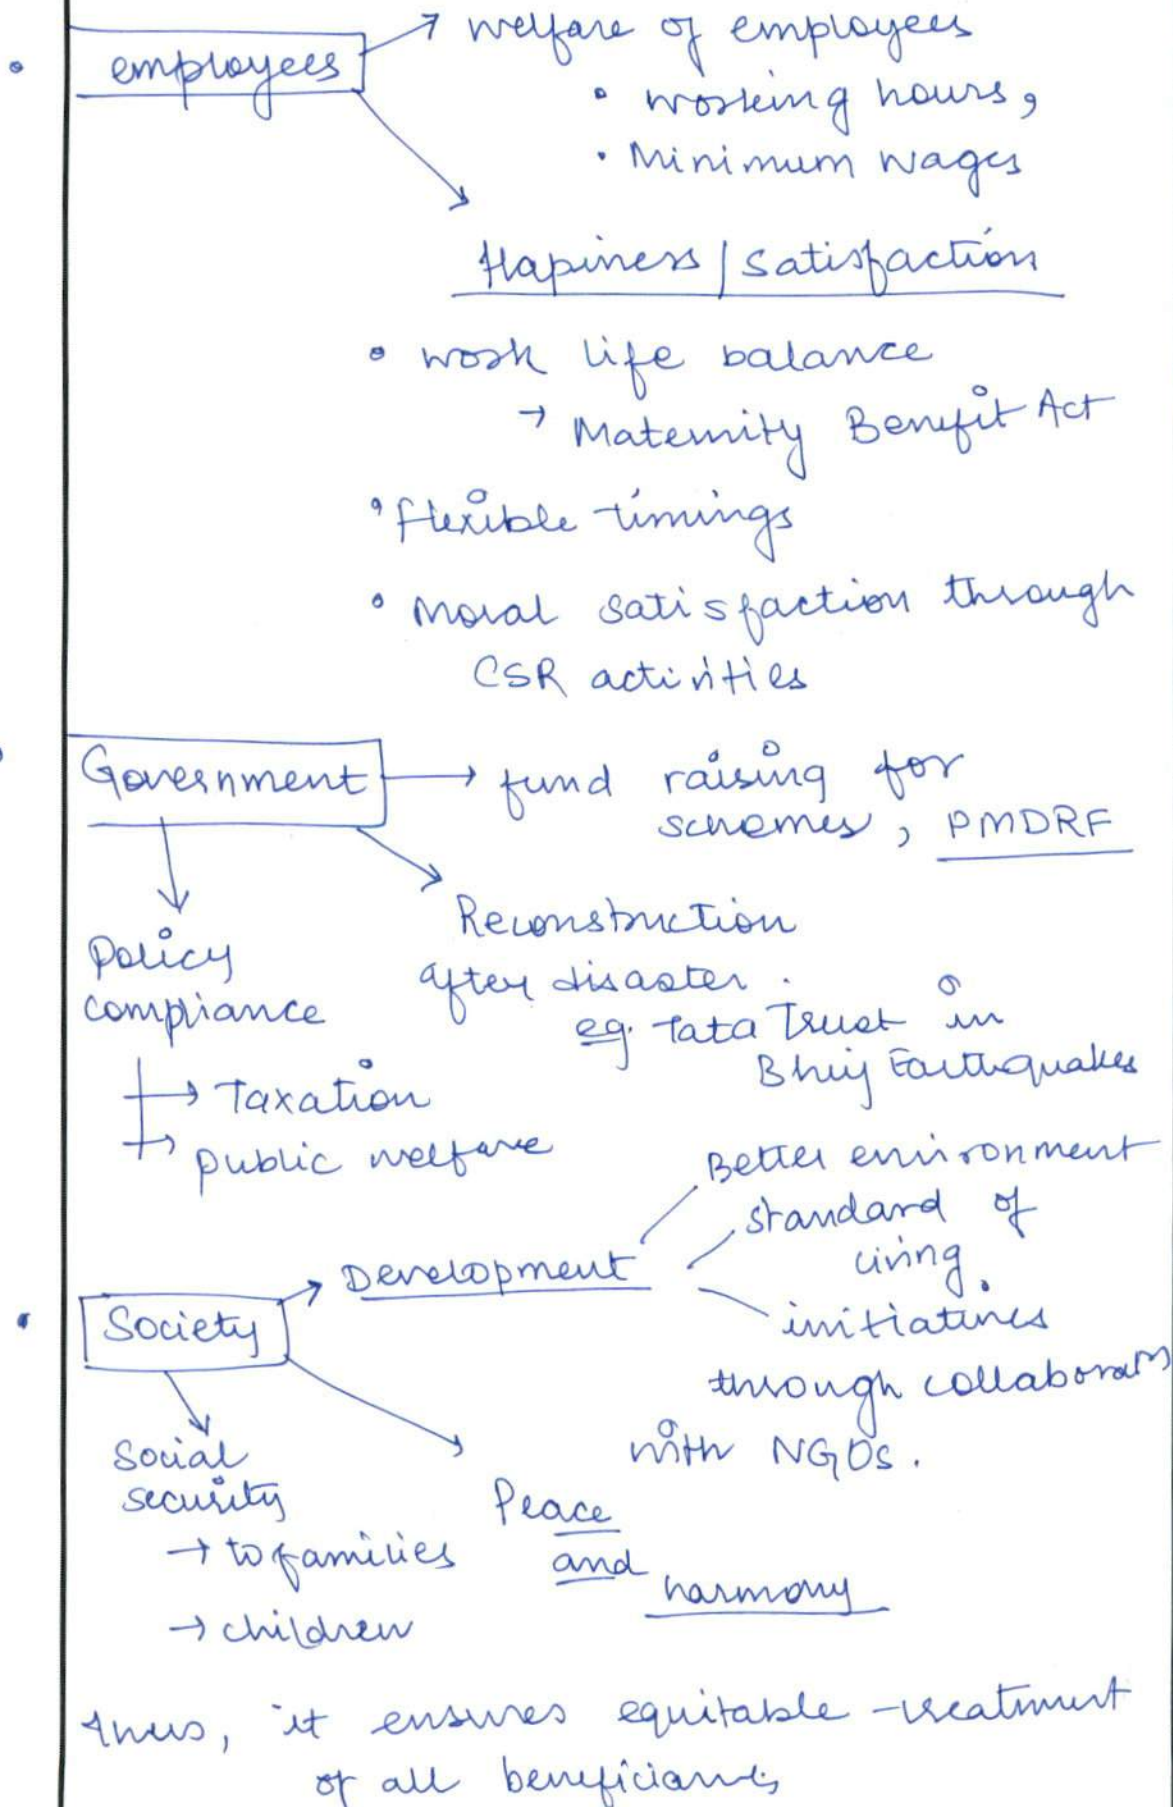 employees → welfare of employees
• working hours,
• Minimum wages
Hapiness / Satisfaction
• work life balance
→ Maternity Benefit Act
• flexible timings
• Moral satisfaction through
CSR activities
Government → fund raising for
schemes, PMDRF
Reconstruction
after disaster.
eg. Tata Trust in
Bhuj Earthquakes
Policy
compliance
→ Taxation
→ public welfare
Society → Development
Better environment
standard of
living.
initiatives
through collaborations
with NGOs.
Social
security
→ to families
→ children
Peace
and
harmony
thus, it ensures equitable treatment
of all beneficiaries